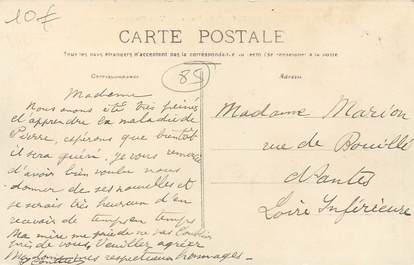 10€
CARTE POSTALE
Tous les pays étrangers n'acceptent pas la correspondance au recto (Se renseigner à la poste
Correspondance
88
Adresse
Madame
Nous avons été très peinés
d'apprendre la maladie de
Pierre, espérons que bientôt
il sera guéri. je vous remercie
d'avoir bien voulu nous
donner de ses nouvelles et
je serais très heureux d'en
recevoir de temps en temps
Ma mère me prie de ne pas l'oublier
près de vous Veuillez agréer
Madame mes respectueux hommages.
Madame Marion
rue de Bouillé
Nantes
Loire Inférieure